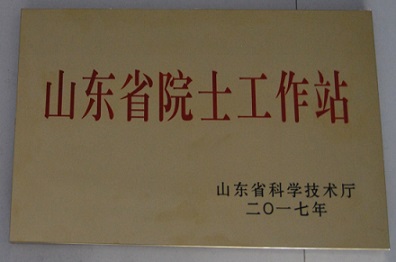 山东省院士工作站
山东省科学技术厅
二〇一七年